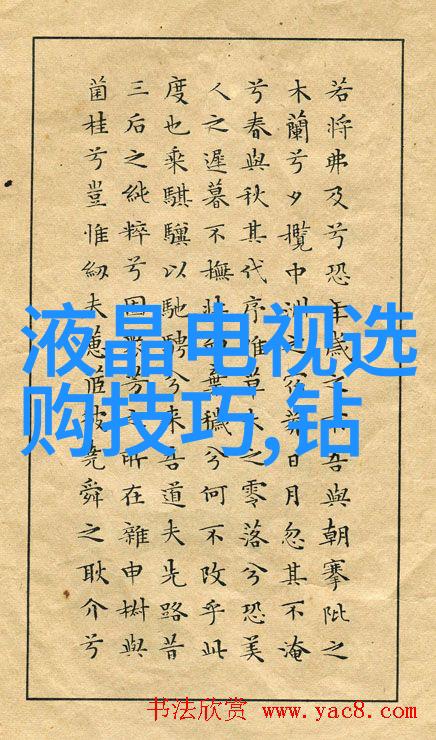 若將弗及兮恐年歲不吾與朝搴阰之
木蘭兮夕攬中洲之宿莽日月忽其不淹
兮春與秋其代序惟草木之零落兮恐美
人之遲暮不撫壯棄穢兮何不改乎此
度也乘騏驥以馳騁兮来吾道夫先路昔
三后之純粹兮固芳之所在雜申椒與
菌桂兮豈惟紉夫蕙彼堯舜之耿介兮
液晶电视选
购技巧,钻
书法欣赏 www.yac8.com